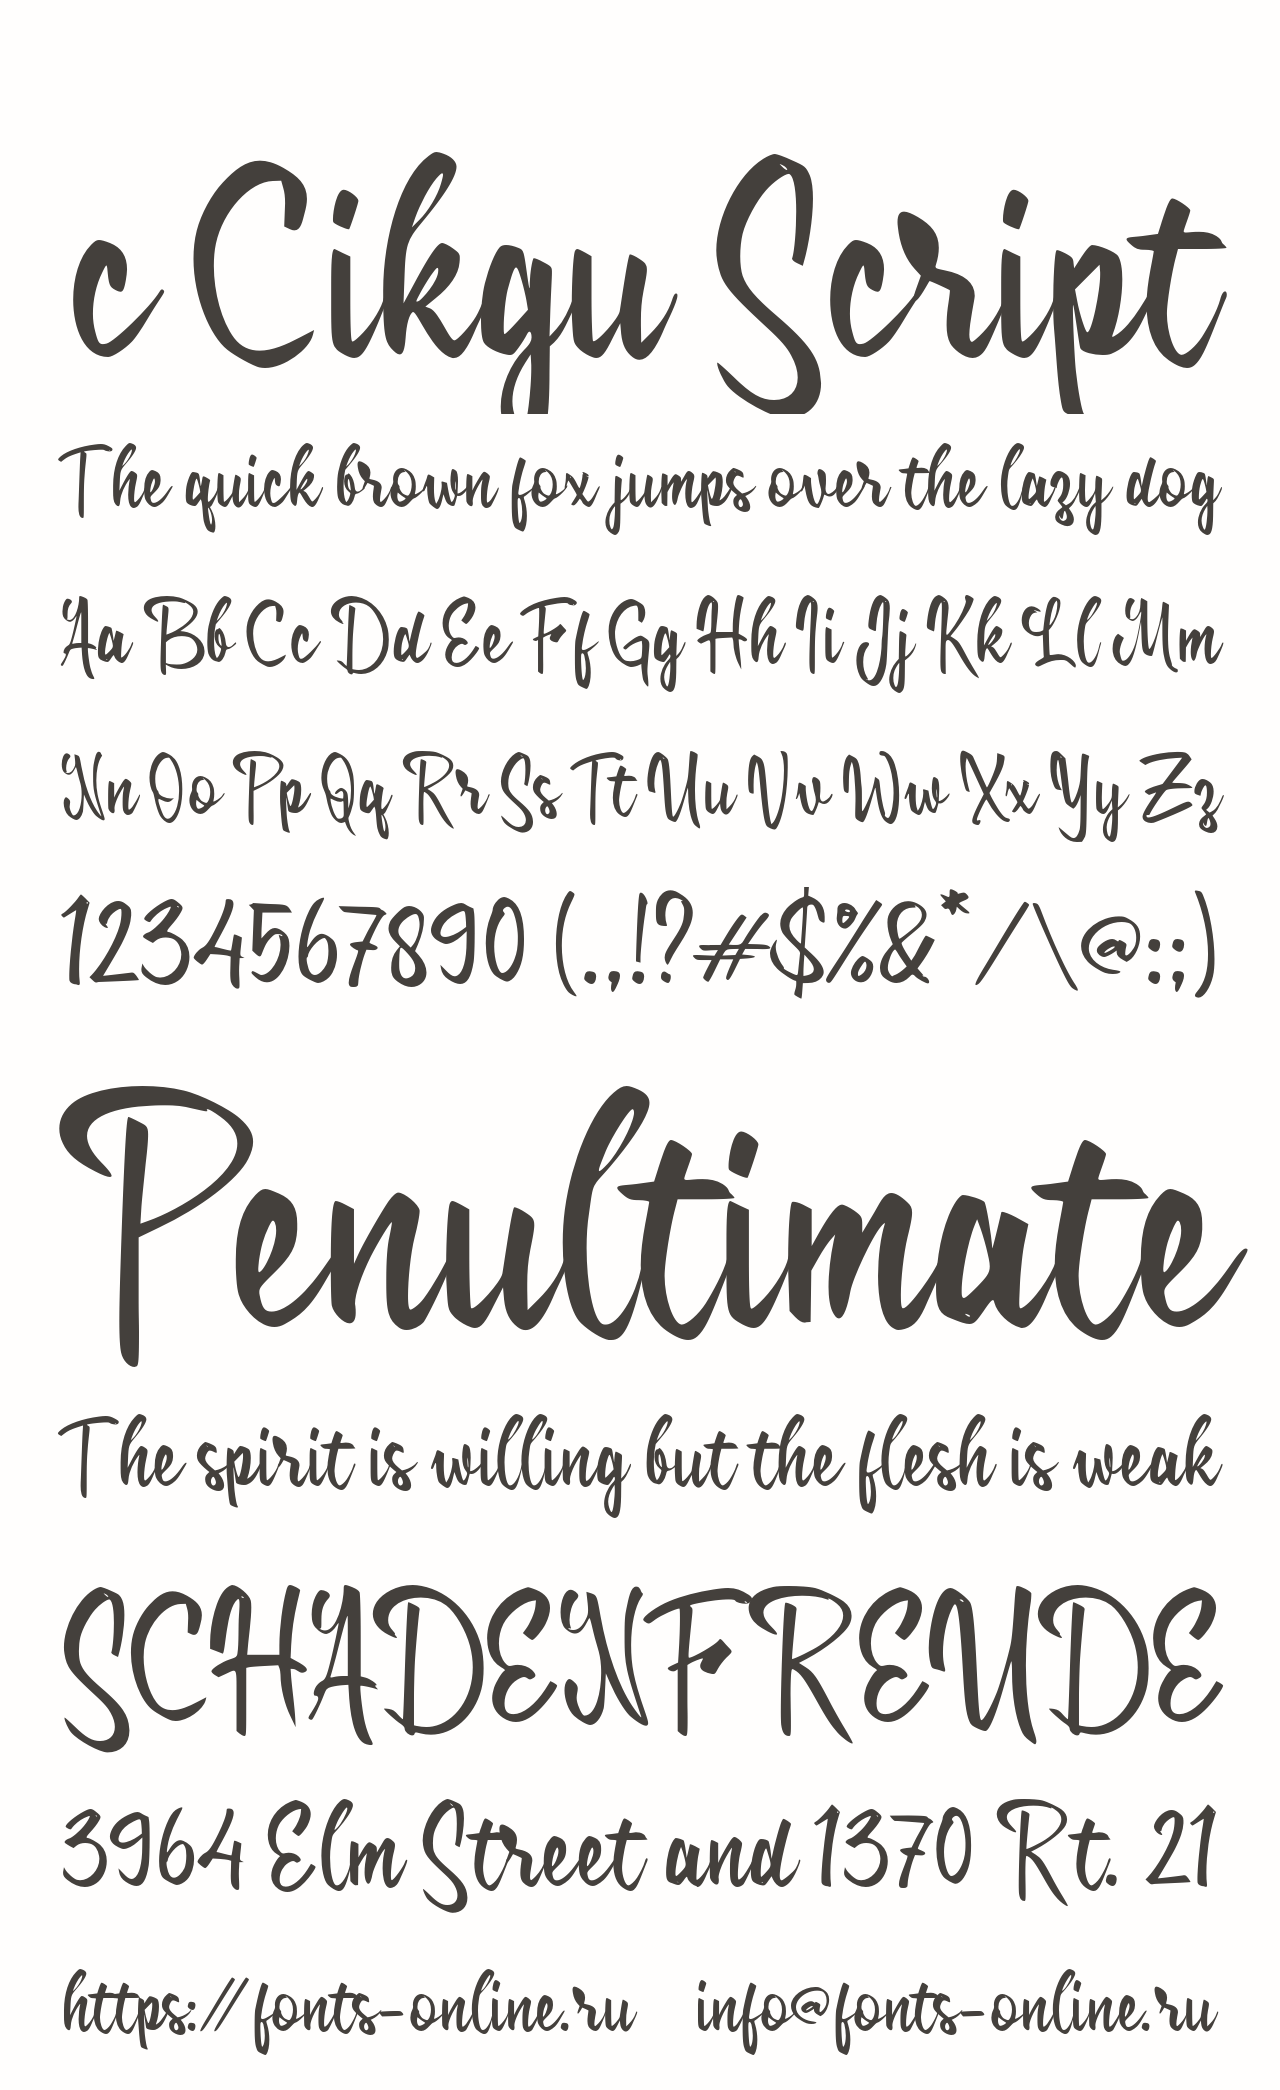 c Cikgu Script
The quick brown fox jumps over the lazy dog
Aa Bb Cc Dd Ee Ff Gg Hh Ii Jj Kk Ll Mm
Nn Oo Pp Qq Rr Ss Tt Uu Vv Ww Xx Yy Zz
1234567890 (.,!?#$%&*/\@:;)
Penultimate
The spirit is willing but the flesh is weak
SCHADENFREUDE
3964 Elm Street and 1370 Rt. 21
https://fonts-online.ru info@fonts-online.ru